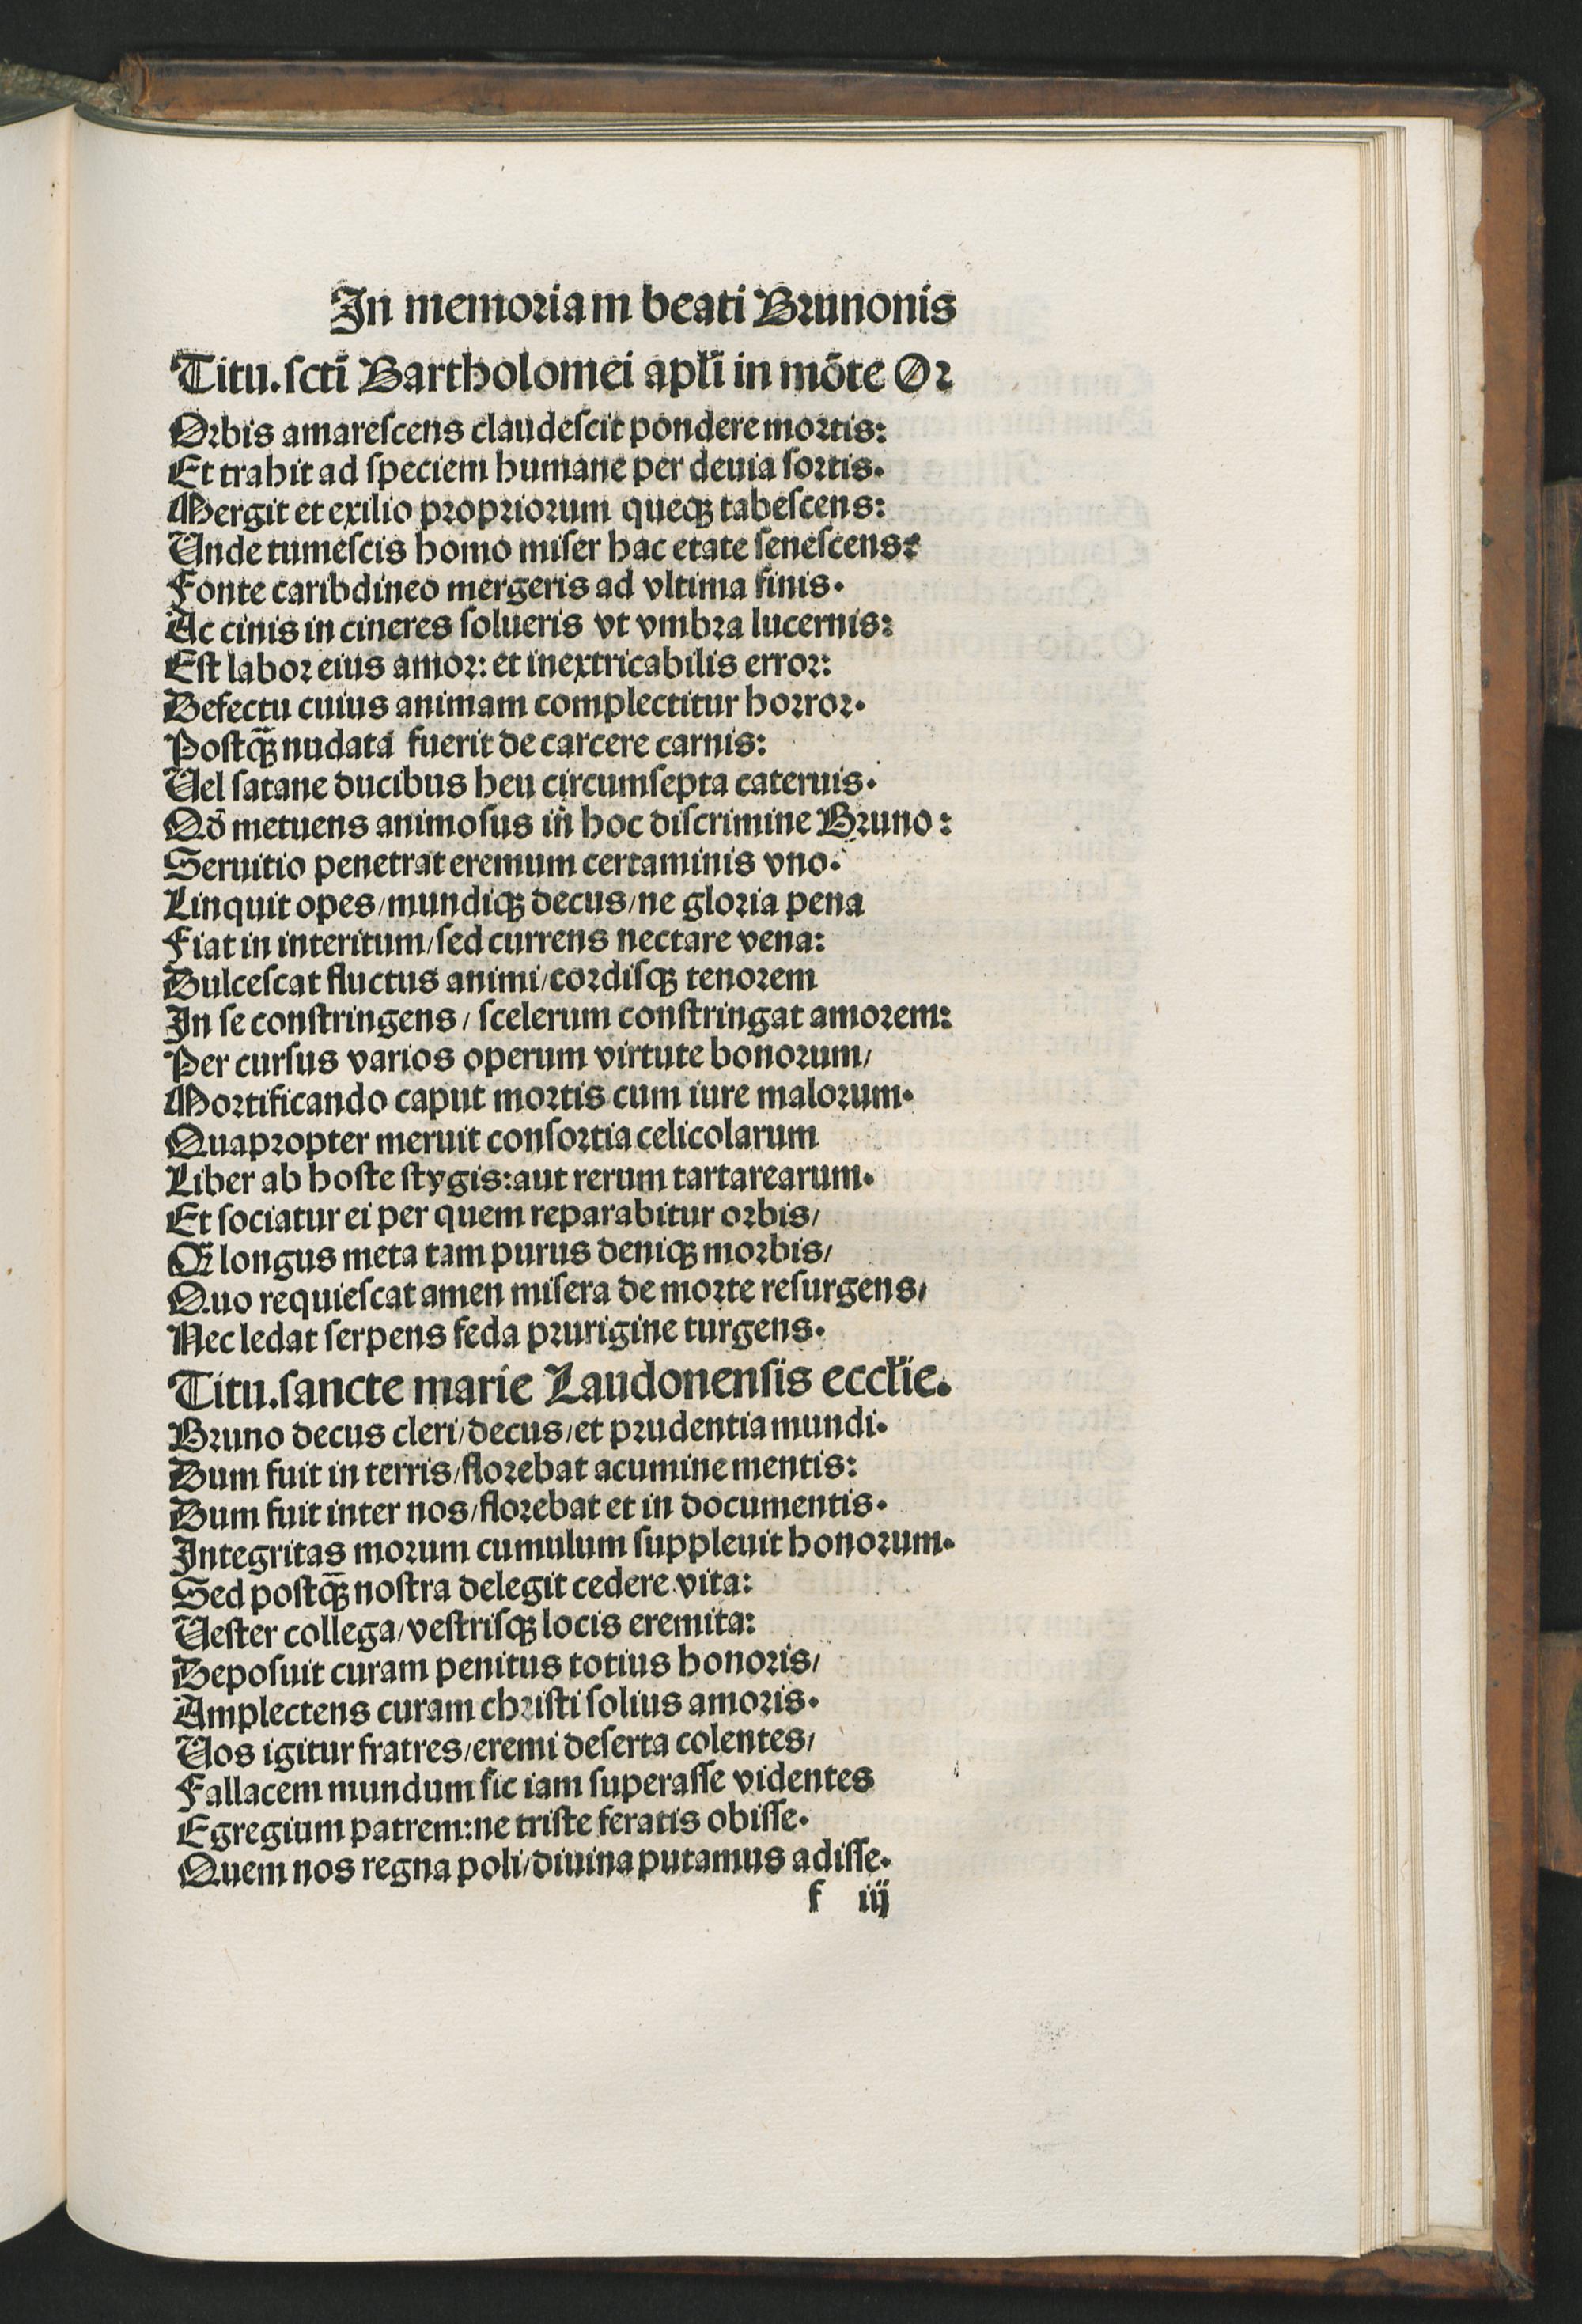 In memoriam beati Brunonis
Titu. scti̅ Bartholomei apl̅i in mo̅te Or
Orbis amarescens claudescit pondere mortis:
Et trahit ad speciem humane per deuia sortis.
Mergit et exilio propriorum queqꝫ tabescens:
Unde tumescis homo miser hac etate senescens:
Fonte caribdineo mergeris ad vltima finis.
Ac cinis in cineres solueris vt vmbra lucernis:
Est labor eius amor: et inextricabilis error:
Defectu cuius animam complectitur horror.
Postqꝫ̅ nudata fuerit de carcere carnis:
Uel satane ducibus heu circumsepta cateruis.
Qd̅ metuens animosus in hoc discrimine Bruno:
Seruitio penetrat eremum certaminis vno.
Linquit opes/mundiqꝫ decus/ne gloria pena
Fiat in interitum/sed currens nectare vena:
Dulcescat fluctus animi/cordisqꝫ tenorem
In se constringens/ scelerum constringat amorem:
Per cursus varios operum virtute bonorum/
Mortificando caput mortis cum iure malorum.
Quapropter meruit consortia celicolarum
Liber ab hoste stygis:aut rerum tartarearum.
Et sociatur ei per quem reparabitur orbis/
longus meta tam purus deniqꝫ morbis/
Quo requiescat amen misera de morte resurgens/
Nec ledat serpens feda prurigine turgens.
Titu.sancte marie Laudonensis eccl̅ie.
Bruno decus cleri/decus/et prudentia mundi.
Dum fuit in terris/florebat acumine mentis:
Dum fuit inter nos/florebat et in documentis.
Integritas morum cumulum suppleuit honorum.
Sed postqꝫ̅ nostra delegit cedere vita:
Uester collega/vestrisqꝫ locis eremita:
Deposuit curam penitus totius honoris/
Amplectens curam christi solius amoris.
Uos igitur fratres/eremi deserta colentes/
Fallacem mundum sic iam superasse videntes
Egregium patrem:ne triste feratis obisse.
Quem nos regna poli/diuina putamus adisse.
f iij